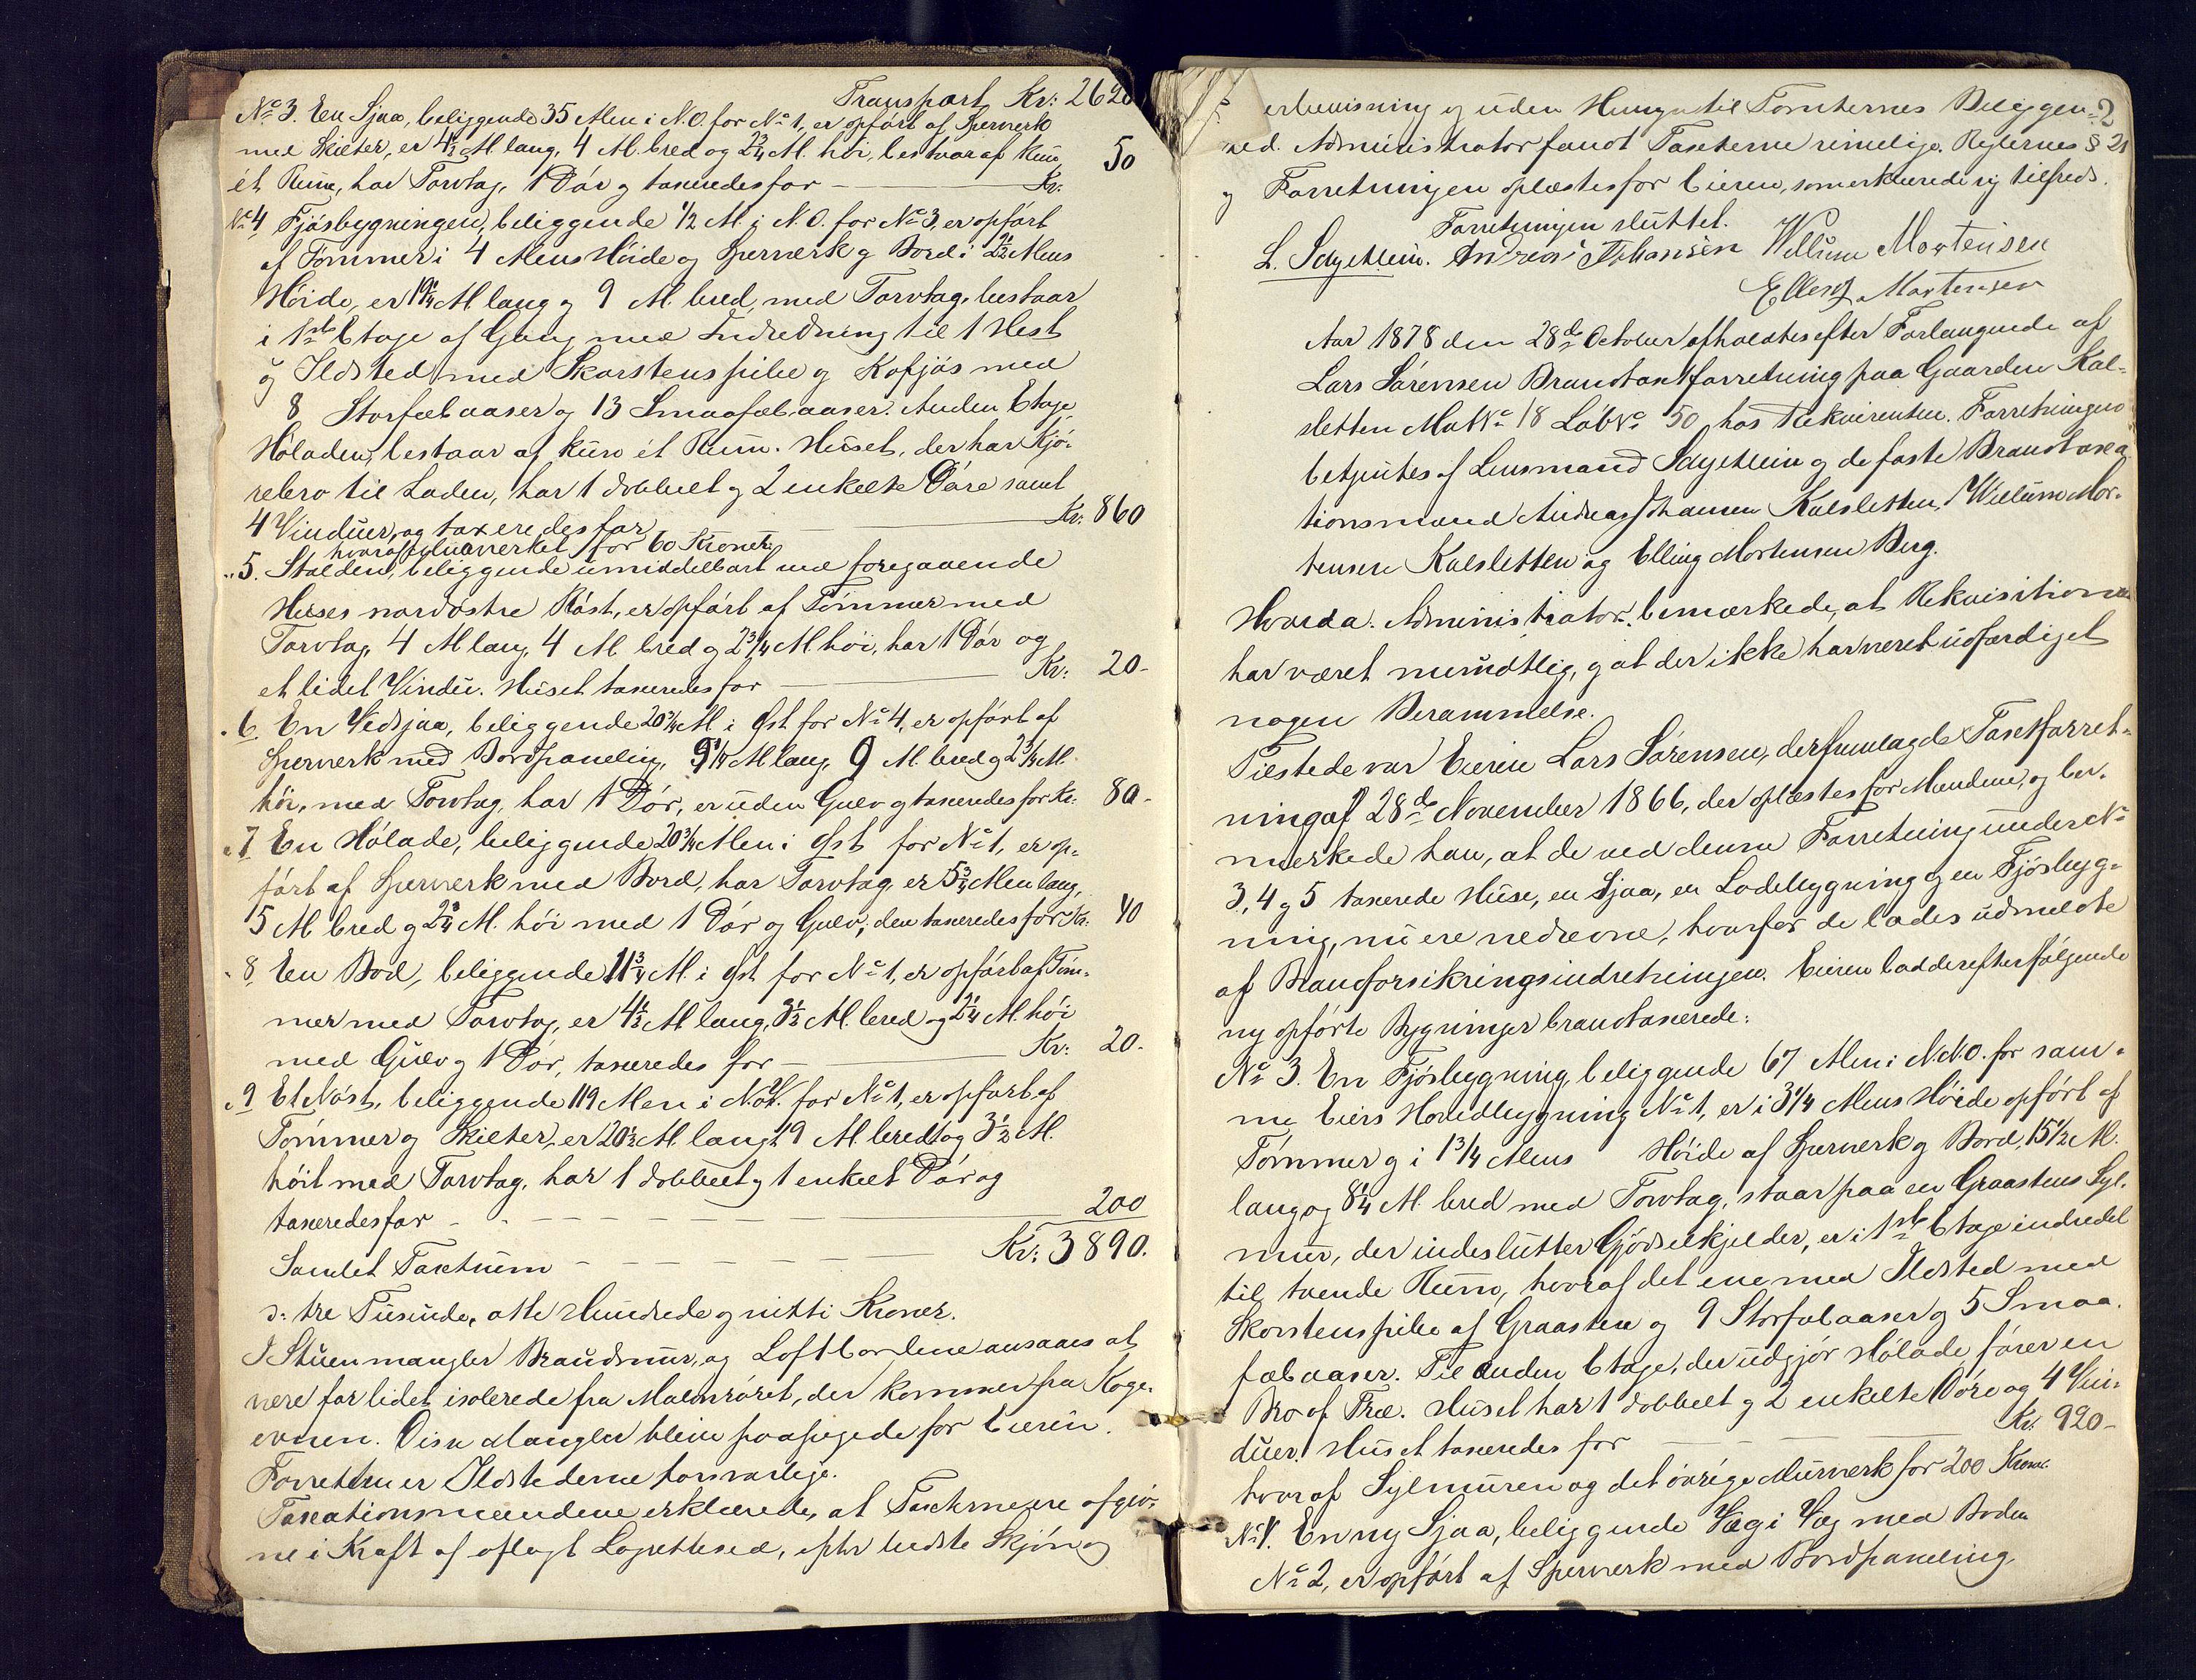 Transport Kr: 2620
No 3. En Sjaa, beliggende 35 Alen i N.O. for No 1, er opført af Sperverk
med Skielter, er 4 1/2 Al. lang, 4 Al. bred og 2 3/4 Al. høi, bestaar af kun 50
ét Rum, har Torvtag, 1 Dør og taxeredes for — Kr:
No 4 Fjøsbygningen, beliggende 1/2 Al. i N.O. for No 3, er opført
af Tømmer i 4 Alens Høide og Sperverk og Bord i 2 1/2 Alens
Høide, er 19 1/4 Al lang og 9 Al. bred, med Torvtag, bestaar
i 1ste Etage af Gang med Indredning til 1 Hest
og Ildsted med Skorstenspibe og Kofjøs med
8 Storfæbaaser og 13 Smaafæbaaser. Anden Etage,
Høladen, bestaar af kun ét Rum. Huset, der har Kjø-
rebro til Laden, har 1 dobbelt og 2 enkelte Døre samt
4 Vinduer, og taxeredes for — Kr: 860
hvoraf Muurverket for 60 Kroner.
" 5. Stalden, beliggende umiddelbart ved foregaaende
Huses nordøstre Røst, er opført af Tømmer med
Torvtag, 4 Al lang, 4 Al bred og 2 3/4 Al høi, har 1 Dør og
et lidet Vindu. Huset taxeredes for — Kr: 20-
" 6 En Vedsjaa, beliggende 20 3/4 Al. i Øst for No 4, er opført af
Sperverk med Bordpaneling, 9 1/4 Al lang, 9 Al. bred og 2 3/4 Al.
høi, med Torvtag, har 1 Dør, er uden Gulv og taxeredes for Kr: 80-
" 7 En Hølade, beliggende 20 3/4 Alen i Øst for No 1, er op-
ført af Sperverk med Bord, har Torvtag, er 5 3/4 Alen lang,
5 Al bred og 2 3/4 Al. høi med 1 Dør og Gulv, den taxeredes for Kr: 40
" 8 En Bod, beliggende 11 3/4 Al. i Øst for No 1, er opført af Tøm-
mer med Torvtag, er 4 1/2 Al lang, 3 1/2 Al. bred og 2 1/4 Al. høi
med Gulv og 1 Dør, taxeredes for — Kr: 20-
" 9 Et Nøst, beliggende 119 Alen i N.V. for No 1, er opført af
Tømmer og Skielter, er 20 1/2 Al. langt, 9 Al. bredt og 3 1/2 Al.
høit med Torvtag, har 1 dobbelt og 1 enkelt Dør og
taxeredes for — 200
Samlet Taxtsum — Kr: 3890.
o: tre Tusinde, otte Hundrede og nitti Kroner.
I Stuen mangler Brandmur, og Loftbordene ansaaes at
være for lidet isolerede fra Malmrøret, der kommer fra Koge-
ovnen. Disse Mangler bleve paapegede for Eieren.
Forøvrigt er Ildstederne forsvarlige.
Taxationsmændene erklærede, at Taxterne ere afgiv-
ne i Kraft af aflagt Lagrettesed, efter bedste Skjøn og
erbevisning og uden Hensyn til Tomternes Beliggen- 2
hed. Administrator fandt Taxterne rimelige. Reglernes § 21
og Forretningen oplæstes for Eieren, som erklærede sig tilfreds.
Forretningen sluttet.
L. Seyetlein. Andreas Johansen Willum Mortensen
Elling Mortensen
Aar 1878 den 28de October afholdtes efter Forlangende af
Lars Sørensen Brandtaxtforretning paa Gaarden Kal-
sletten Mat No 18 Løb No 50 hos Rekvirenten. Forretningen
betjentes af Lensmand Seyetlein og de faste Brandtaxa-
tionsmænd Andreas Johansen Kalsletten, Willum Mor-
tensen Kalsletten og Elling Mortensen Berg.
Hvorda. Administrator bemærkede, at Rekvisitionen
har været mundtlig, og at der ikke har været udfærdiget
nogen Berammelse.
Tilstede var Eieren Lars Sørensen, der fremlagde Taxtforret-
ning af 28de November 1866, der oplæstes for Mændene, og be-
mærkede han, at de ved denne Forretning under No
3, 4 og 5 taxerede Huse, en Sjaa, en Ladebygning og en Fjøsbyg-
ning, nu ere nedrevne, hvorfor de lades udmeldte
af Brandforsikringsindretningen. Eieren lod derefter følgende
ny opførte Bygninger brandtaxerede:
No 3. En Fjøsbygning beliggende 67 Alen i N.N.O. for sam-
me Eiers Hovedbygning No 1, er i 3 1/4 Alens Høide opført af
Tømmer og i 1 3/4 Alens Høide af Sperverk og Bord, 15 1/2 Al.
lang og 8 1/4 Al. bred med Torvtag, staar paa en Graastens Syl-
mur, der indeslutter Gjødselkjelder, er i 1ste Etage indredet
til tvende Rum, hvoraf det ene med Ildsted med
Skorstenspibe af Graasten og 9 Storfæbaaser og 5 Smaa-
fæbaaser. Til anden Etage, der udgjør Hølade, fører en
Bro af Træ. Huset har 1 dobbelt og 2 enkelte Døre og 4 Vin-
duer. Huset taxeredes for — Kr. 920-
hvoraf Sylmuren og det øvrige Murverk for 200 Kroner.
No 4. En ny Sjaa, beliggende Væg i Væg med Boden
No 2, er opført af Sperverk med Bordpaneling